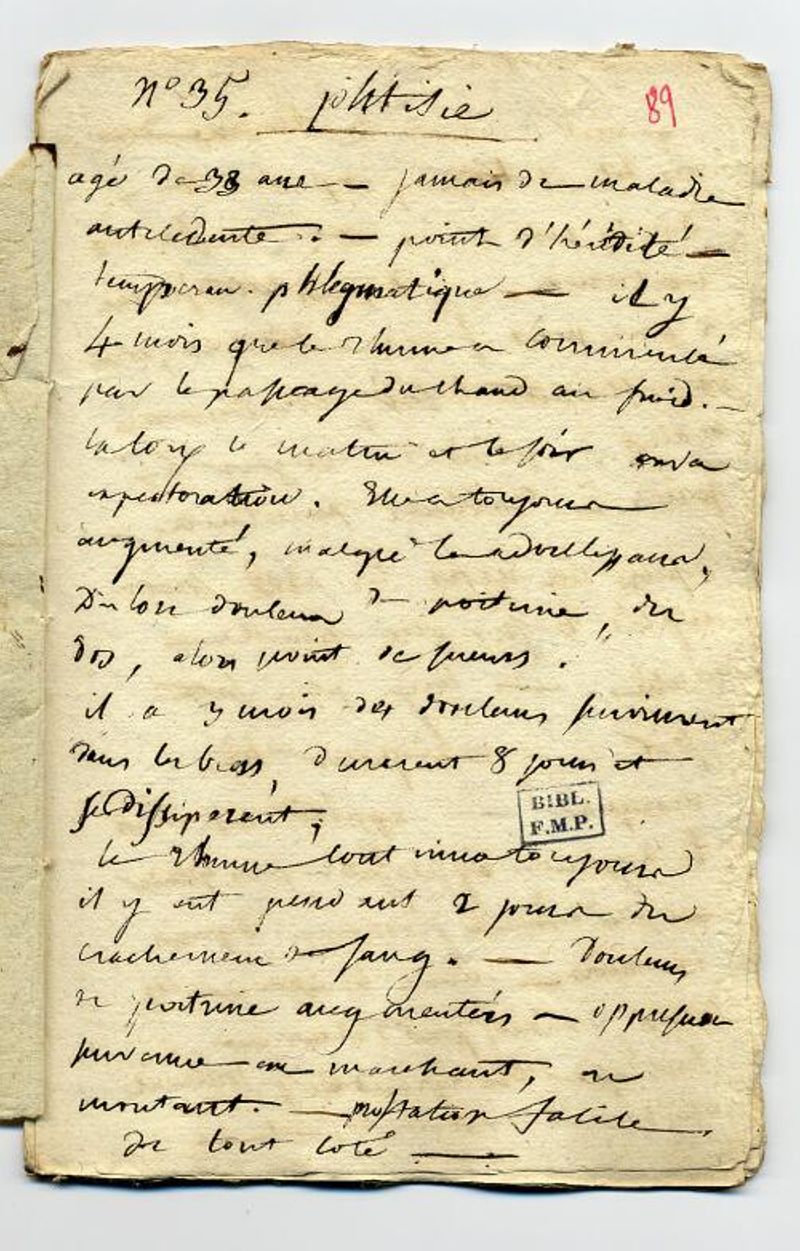 nº 35. phtisie
89
agé de 38 ans — jamais de maladie
antecedente. — point d'hérédité —
temperam. phlegmatique — il y
4 mois que le rhume a commencé
par le passage du chaud au froid. —
la toux le matin et le soir
expectoration. Elle a toujours
augmenté, malgré
Des lors douleur de poitrine, du
dos, alors point de sueurs.
il a 3 mois des douleurs survinrent
dans les bras, durerent 8 jours et
se dissiperent;
le rhume continua toujours
il y eut pendant 2 jours du
crachement de sang. — Douleurs
de poitrine augmentées — oppression
survenue en marchant, en
montant. — facile
de tout coté —
BIBL.
F.M.P.